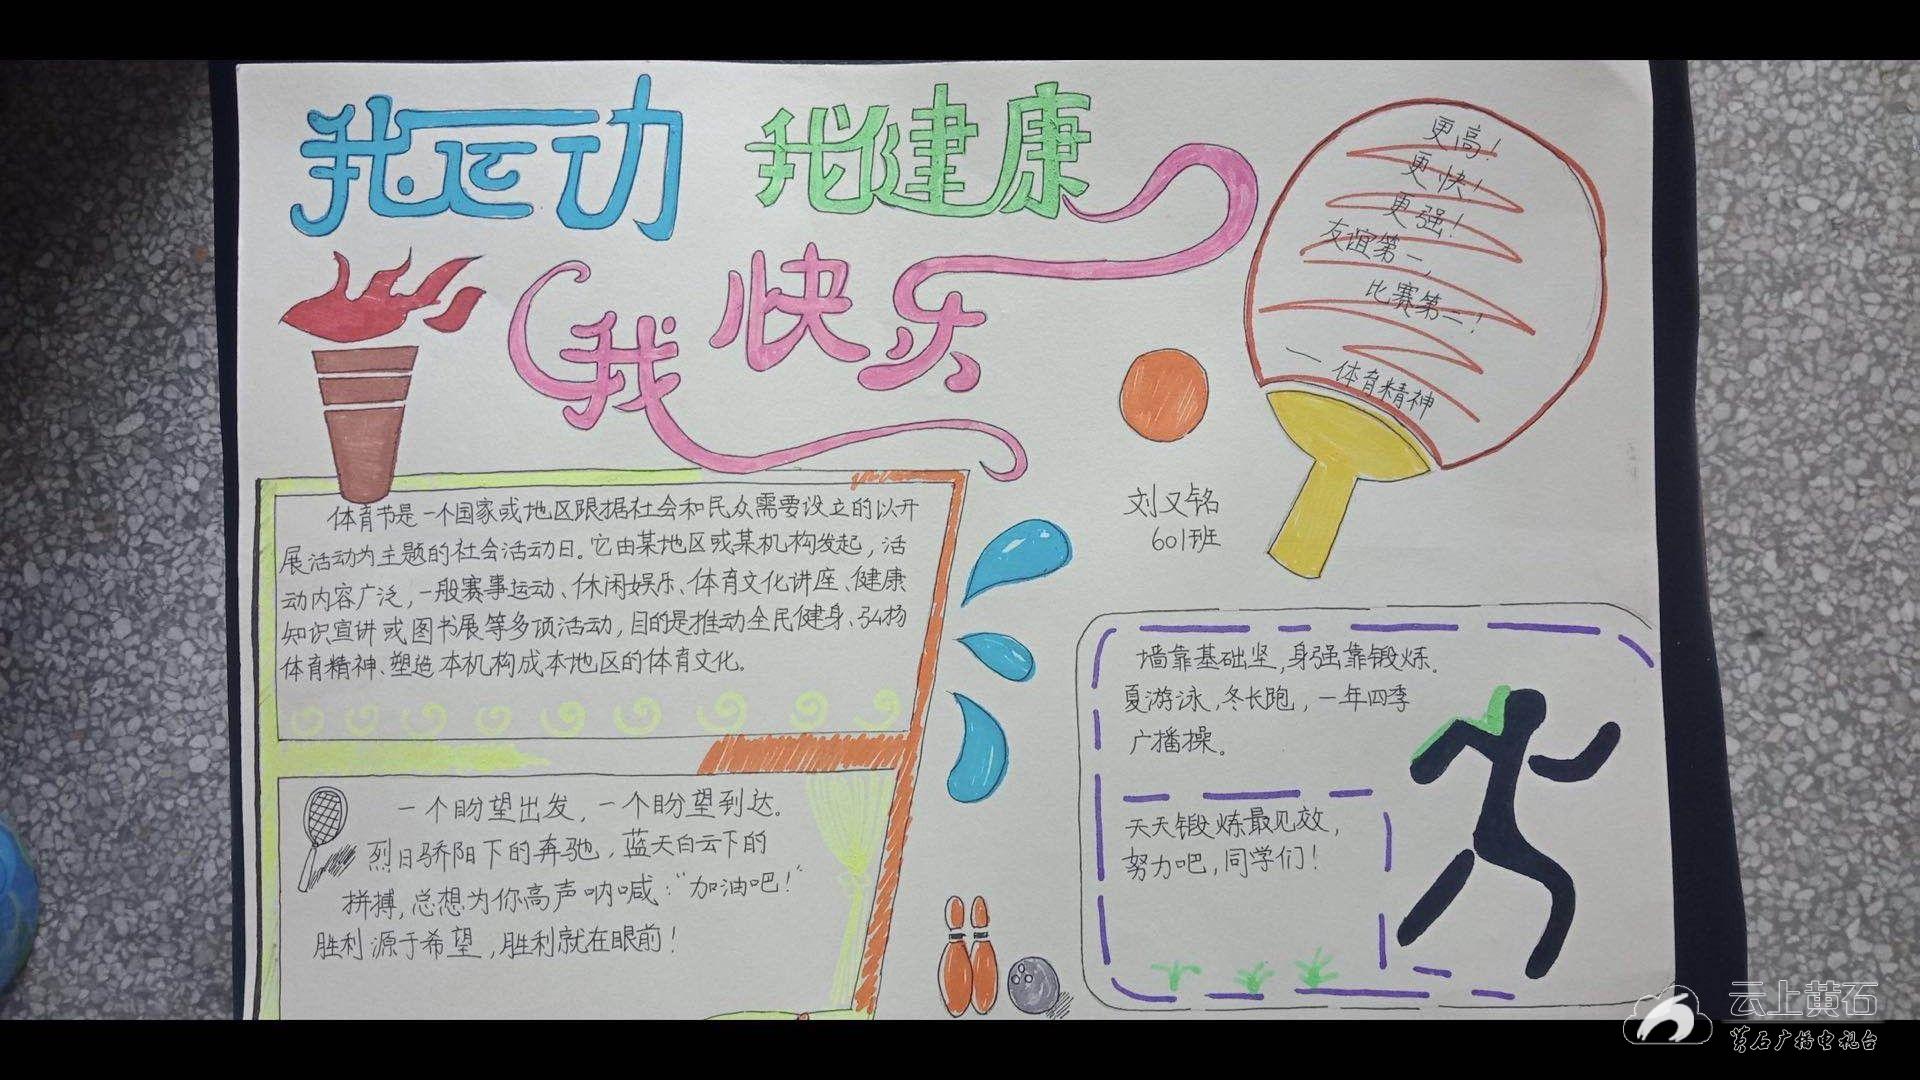 我运动 我健康
我快乐
更高！
更快！
更强！
友谊第一，
比赛第二！
——体育精神
刘又铭
601班
体育节是一个国家或地区限据社会和民众需要设立的以开
展活动为主题的社会活动日。它由某地区或某机构发起，活
动内容广泛，一般赛事运动、休闲娱乐、体育文化讲座、健康
知识宣讲或图书展等多项活动，目的是推动全民健身、弘扬
体育精神、塑造本机构成本地区的体育文化。
一个盼望出发，一个盼望到达。
烈日骄阳下的奔驰，蓝天白云下的
拼搏，总想为你高声呐喊：“加油吧！”
胜利源于希望，胜利就在眼前！
墙靠基础坚，身强靠锻炼。
夏游泳，冬长跑，一年四季
广播操。
天天锻炼最见效，
努力吧，同学们！
云上黄石
黄石广播电视台